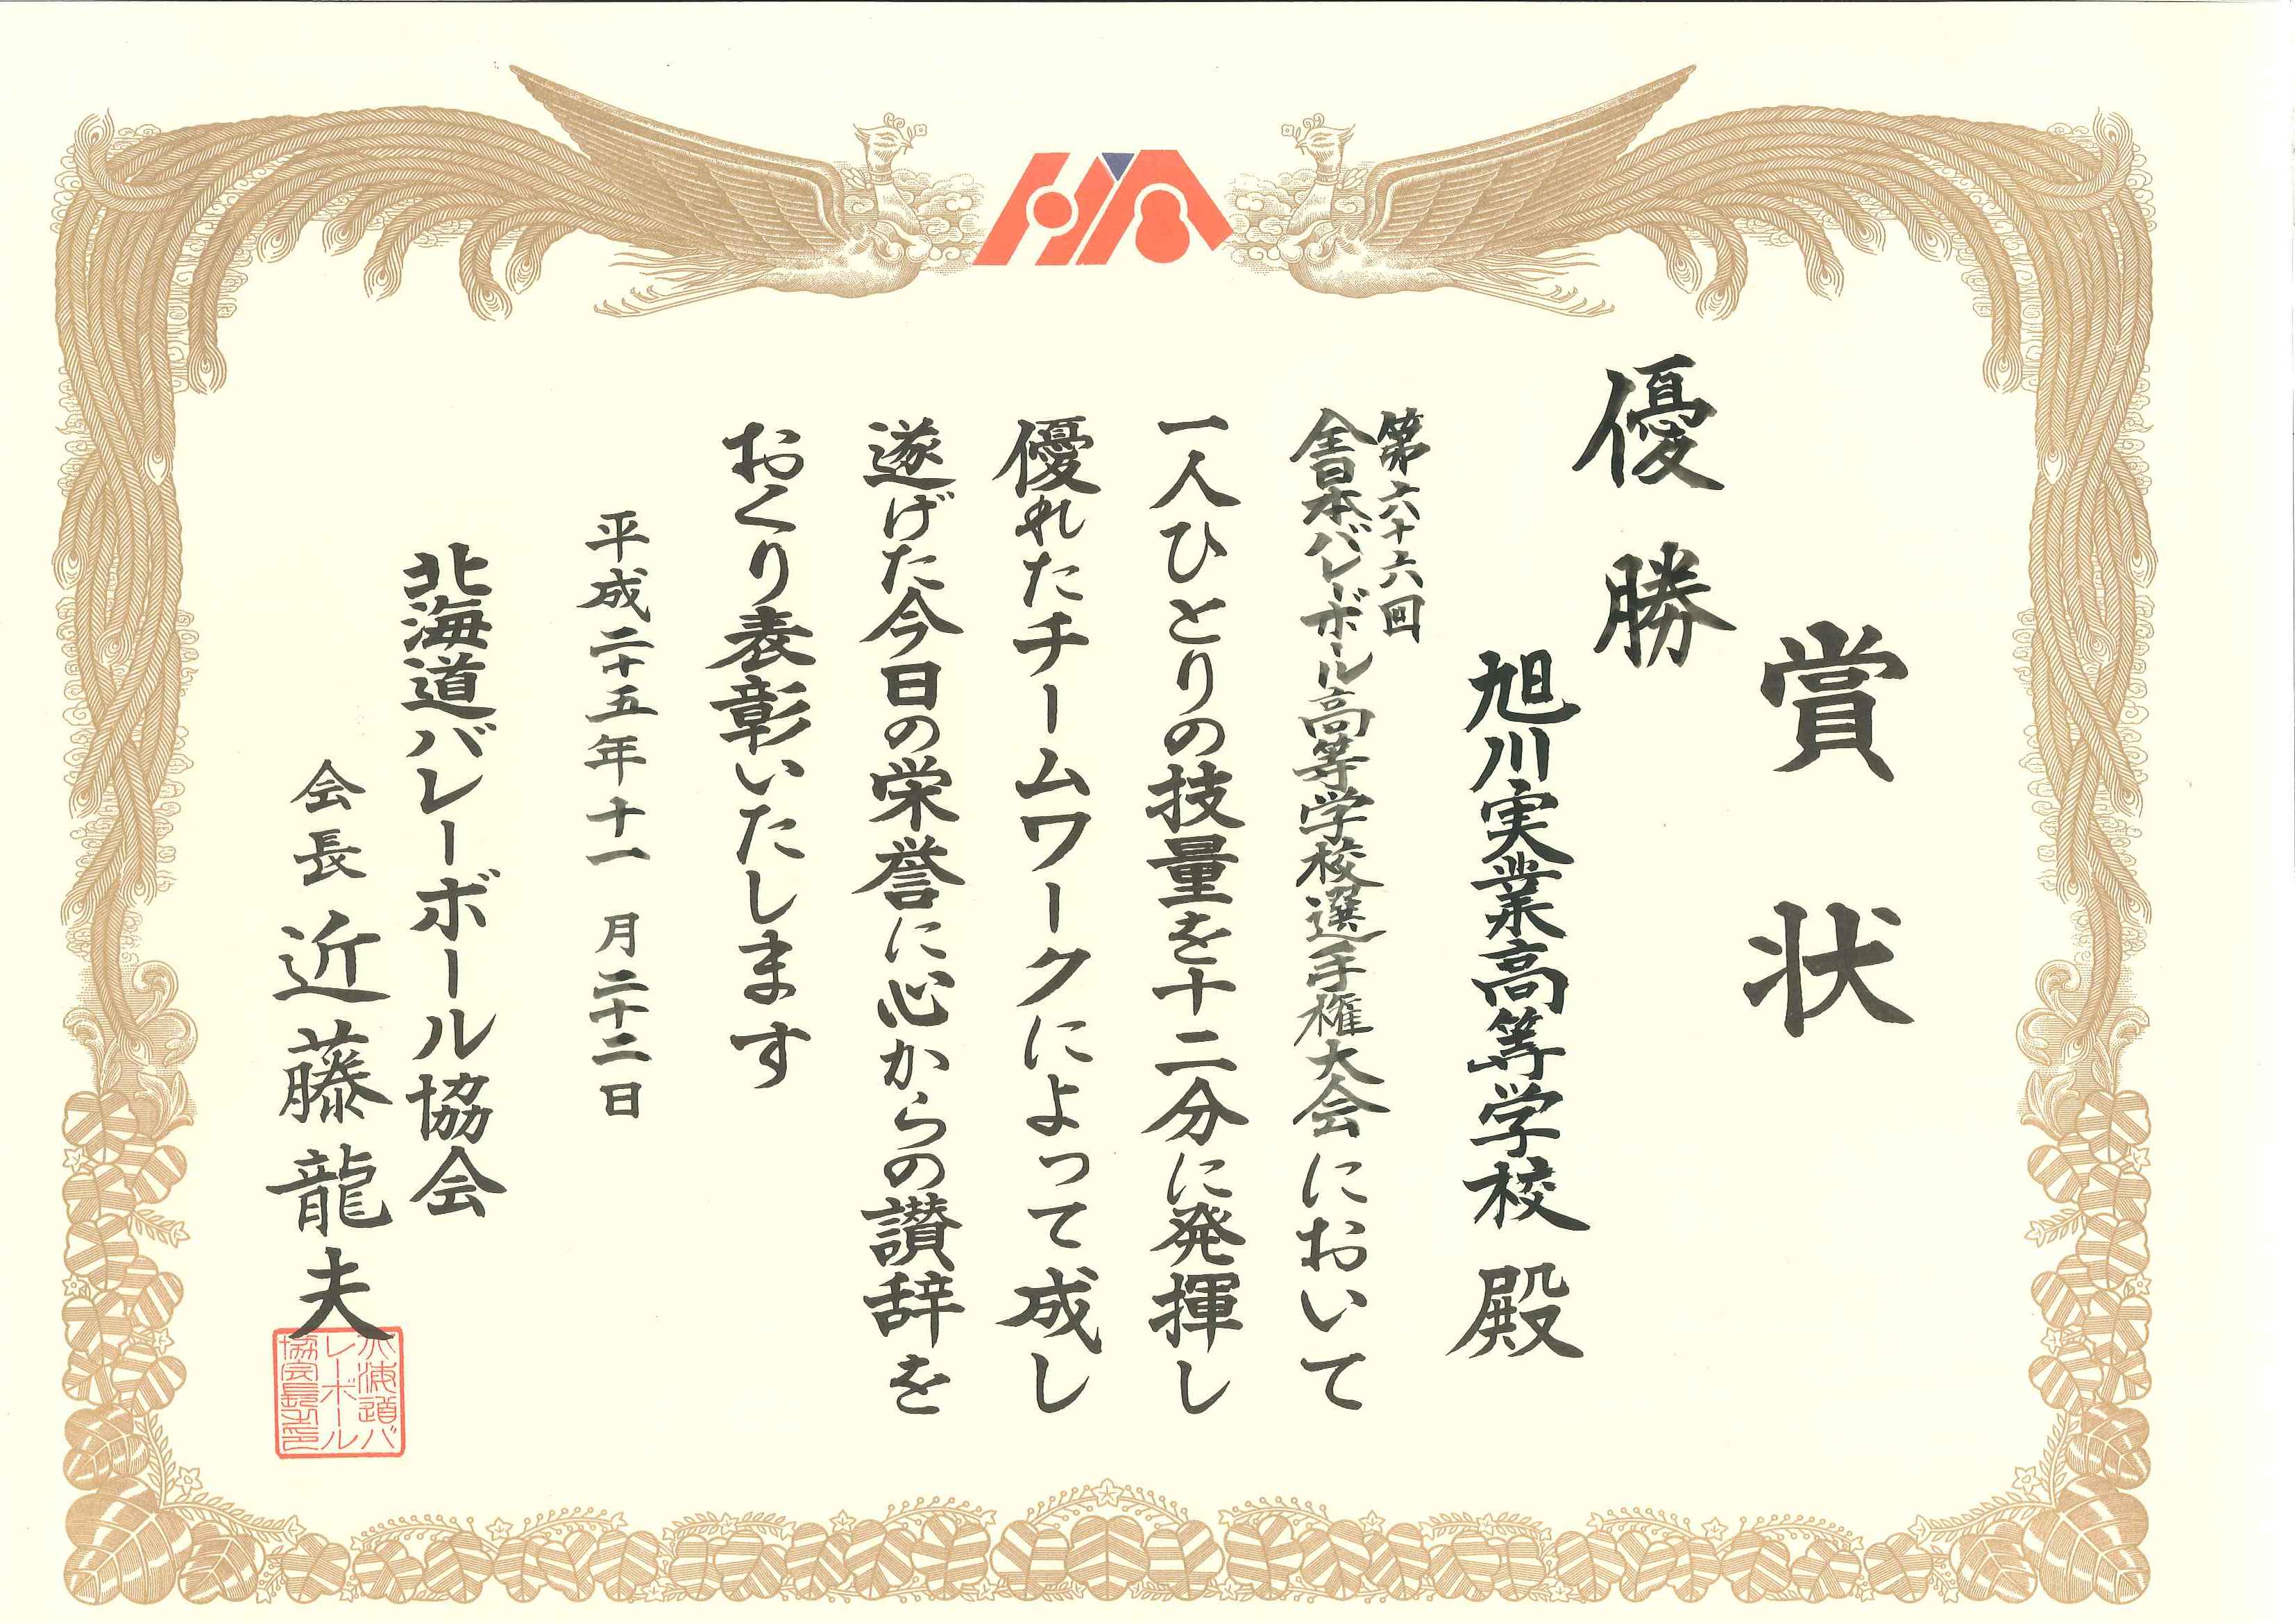 賞状
優勝
旭川実業高等学校 殿
第六十六回
全日本バレーボール高等学校選手権大会において
一人ひとりの技量を十二分に発揮し
優れたチームワークによって成し
遂げた今日の栄誉に心からの讃辞を
おくり表彰いたします
平成二十五年十一月二十二日
北海道バレーボール協会
会長 近藤龍夫
北海道バ
レーボール
協会長之印